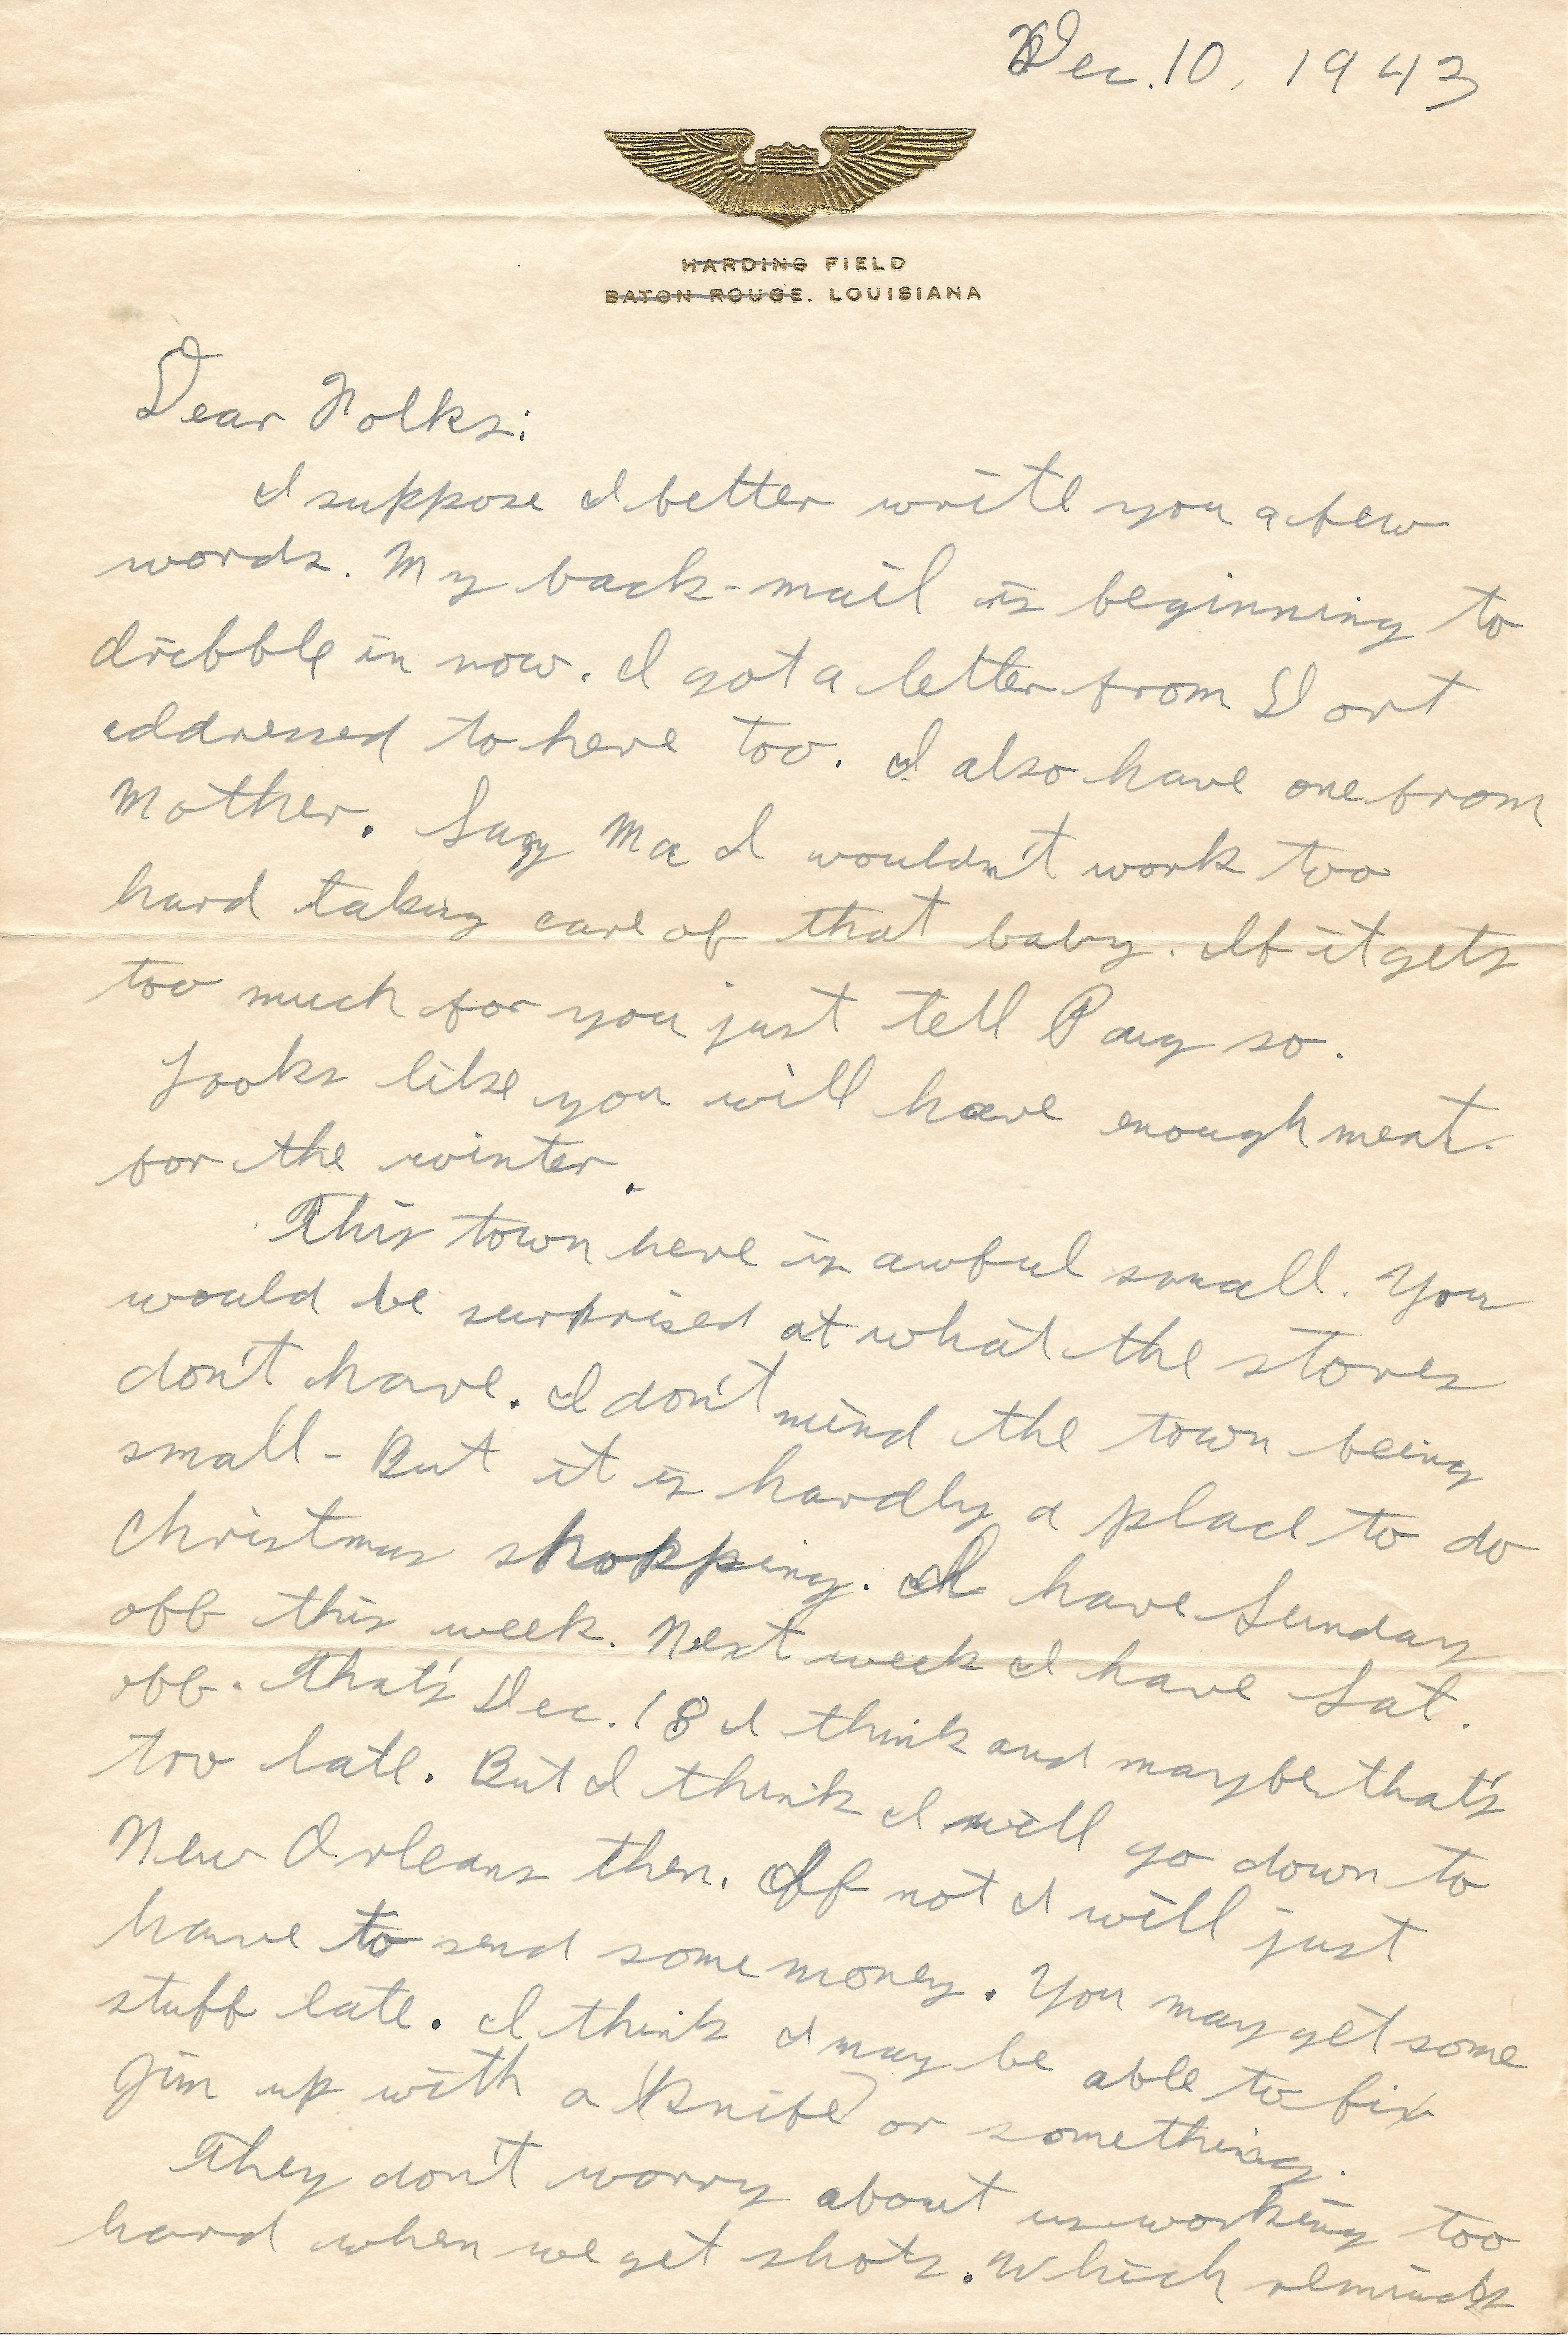 Dec. 10, 1943
HARDING FIELD
BATON ROUGE, LOUISIANA
Dear Folks:
I suppose I better write you a few
words. My back-mail is beginning to
dribble in now. I got a letter from Dort
addressed to here too. I also have one from
Mother. Say Ma I wouldn't work too
hard taking care of that baby. If it gets
too much for you just tell Pay so.
Looks like you will have enough meat
for the winter.
This town here is awful small. You
would be surprised at what the stores
don't have. I don't mind the town being
small - But it is hardly a place to do
Christmas shopping. I have Sunday
off this week. Next week I have Sat.
off. That's Dec. 18 I think and maybe that's
too late. But I think I will go down to
New Orleans then. If not I will just
have to send some money. You may get some
stuff late. I think I may be able to fix
Jim up with a (Knife) or something.
They don't worry about us working too
hard when we get shots. Which reminds